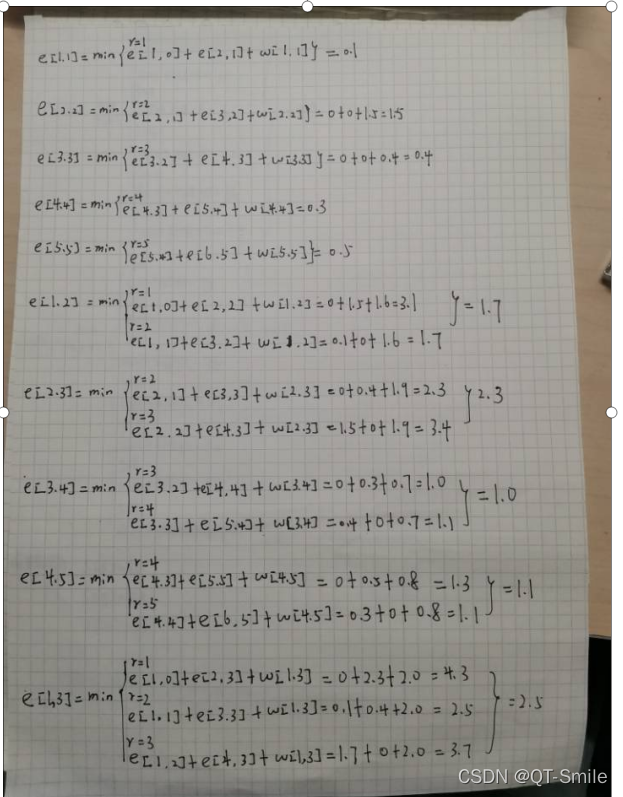 r=1
e[1,1]=min{e[1,0]+e[2,1]+w[1,1]}=0.1
r=2
e[2.2]=min{e[2,1]+e[3,2]+w[2.2]}=0+0+1.5=1.5
r=3
e[3.3]=min{e[3.2]+e[4.3]+w[3.3]}=0+0+0.4=0.4
r=4
e[4.4]=min{e[4.3]+e[5.4]+w[4.4]=0.3
r=5
e[5.5]=min{e[5.4]+e[6.5]+w[5.5]}=0.5
r=1
e[1.2]=min{e[1,0]+e[2,2]+w[1.2]=0+1.5+1.6=3.1 }=1.7
r=2
e[1,1]+e[3.2]+w[1.2]=0.1+0+1.6=1.7
r=2
e[2.3]=min{e[2,1]+e[3,3]+w[2.3]=0+0.4+1.9=2.3 }2.3
r=3
e[2,2]+e[4.3]+w[2.3]=1.5+0+1.9=3.4
r=3
e[3.4]=min{e[3.2]+e[4,4]+w[3.4]=0+0.3+0.7=1.0 }=1.0
r=4
e[3.3]+e[5.4]+w[3.4]=0.4+0+0.7=1.1
r=4
e[4.5]=min{e[4.3]+e[5.5]+w[4.5]=0+0.5+0.8=1.3 }=1.1
r=5
e[4.4]+e[6,5]+w[4.5]=0.3+0+0.8=1.1
r=1
e[1,0]+e[2,3]+w[1.3]=0+2.3+2.0=4.3
r=2
e[1,3]=min{e[1,1]+e[3.3]+w[1.3]=0.1+0.4+2.0=2.5 }=2.5
r=3
e[1,2]+e[4,3]+w[1,3]=1.7+0+2.0=3.7
CSDN @QT-Smile